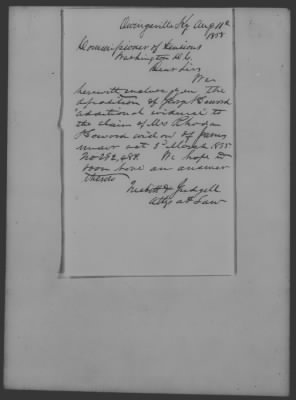 Owingsville Ky Aug 11th
1858
Commissioner of Pensions
Washington D.C.
Dear Sir
We
herewith enclose you the
affidavit of Howard
additional evidence to
the claim of Mrs Rhoda
Howard widow of James
under act 3d March 1855
No 262,488. We hope to
soon have an answer
thereto
Nesbitt & Gudgell
Attys at Law